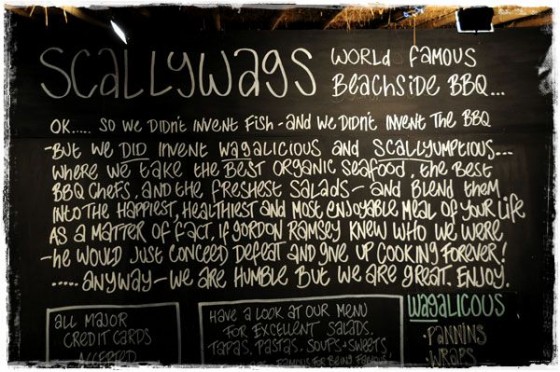 Scallywags
World Famous
Beachside BBQ...
OK..... So we didn't invent fish - and we didn't invent the BBQ
-But we DID invent wagalicious and scallyumptious...
where we take the best organic seafood, the best
BBQ chefs, and the freshest salads - and blend them
into the happiest, healthiest and most enjoyable meal of your life
As a matter of fact, if Gordon Ramsey knew who we were
-he would just conceed defeat and give up cooking forever!
..... Anyway - we are humble but we are great. Enjoy.
All major
credit cards
accepted
Have a look at our menu
for excellent salads,
tapas, pastas, soups & sweets
famous for being famous!
Wagalicous
·Paninns
·Wraps